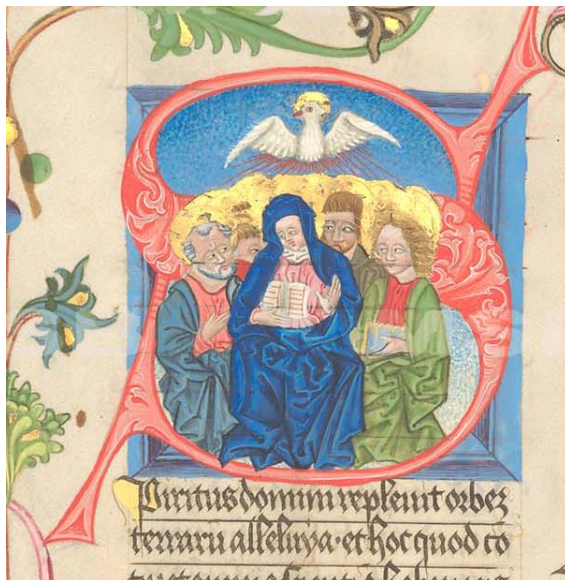 SPiritus domini repleuit orbez
terrarū alleluya · et hoc quod cō